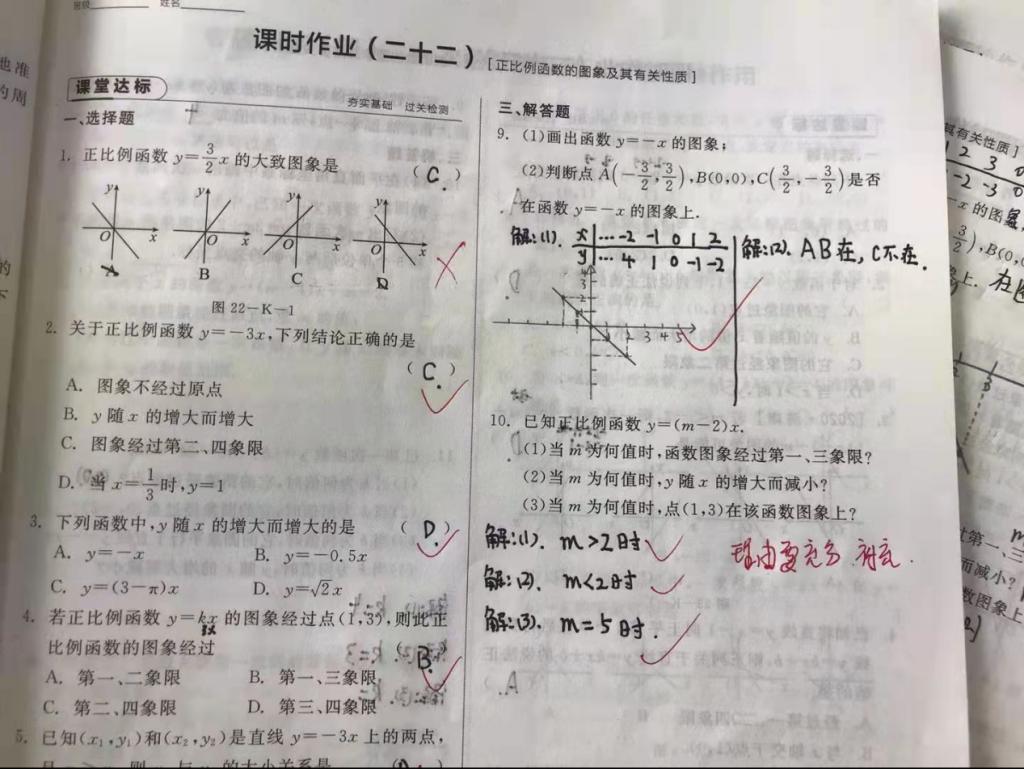 班级 姓名
课时作业(二十二)
[正比例函数的图象及其有关性质]
课堂达标
夯实基础 过关检测
一、选择题
1. 正比例函数 y=3/2x 的大致图象是 (C.)
y y y y
O x O x O x O x
B C D
图 22-K-1
2. 关于正比例函数 y=-3x,下列结论正确的是
(C.)
A. 图象不经过原点
B. y 随 x 的增大而增大
C. 图象经过第二、四象限
D. 当 x=1/3时,y=1
3. 下列函数中,y 随 x 的增大而增大的是 (D.)
A. y=-x B. y=-0.5x
C. y=(3-π)x D. y=√2x
4. 若正比例函数 y=kx 的图象经过点(1,3),则此正
3x
比例函数的图象经过 (B.)
A. 第一、二象限 B. 第一、三象限
C. 第二、四象限 D. 第三、四象限
5. 已知(x₁,y₁)和(x₂,y₂)是直线 y=-3x 上的两点,
三、解答题
9. (1)画出函数 y=-x 的图象;
(2)判断点 A(-3/2,3/2),B(0,0),C(3/2,-3/2)是否
在函数 y=-x 的图象上.
解:(1). x … -2 -1 0 1 2
y … 4 1 0 -1 -2
解:(2). A B在, C不在.
10. 已知正比例函数 y=(m-2)x.
(1)当 m 为何值时,函数图象经过第一、三象限?
(2)当 m 为何值时,y 随 x 的增大而减小?
(3)当 m 为何值时,点(1,3)在该函数图象上?
解:(1). m>2时
理由要充分
解:(2). m<2时
解:(3). m=5时.
其有关性质]
1 2 3 0
-2 -3 0
-x 的图象
3/2),B(0,0